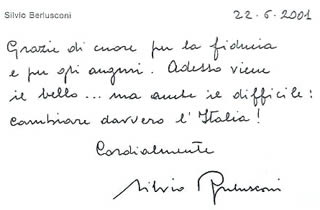 Silvio Berlusconi
22-6-2001
Grazie di cuore per la fiducia
e per gli auguri. Adesso viene
il bello... ma anche il difficile:
cambiare davvero l'Italia!
Cordialmente
Silvio Berlusconi